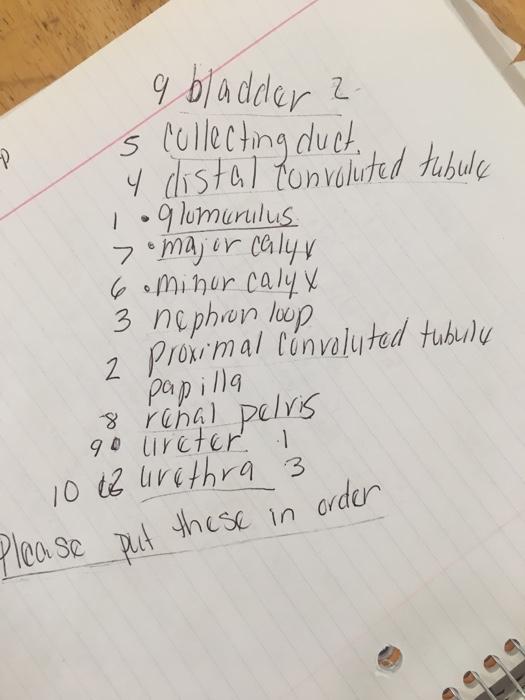 9 bladder 2
5 collecting duct.
4 distal convoluted tubule
1 • glomerulus
7 • major calyx
6 • minor calyx
3 nephron loop
2 proximal convoluted tubule
papilla
8 renal pelvis
9 ureter 1
10 urethra 3
Please put these in order